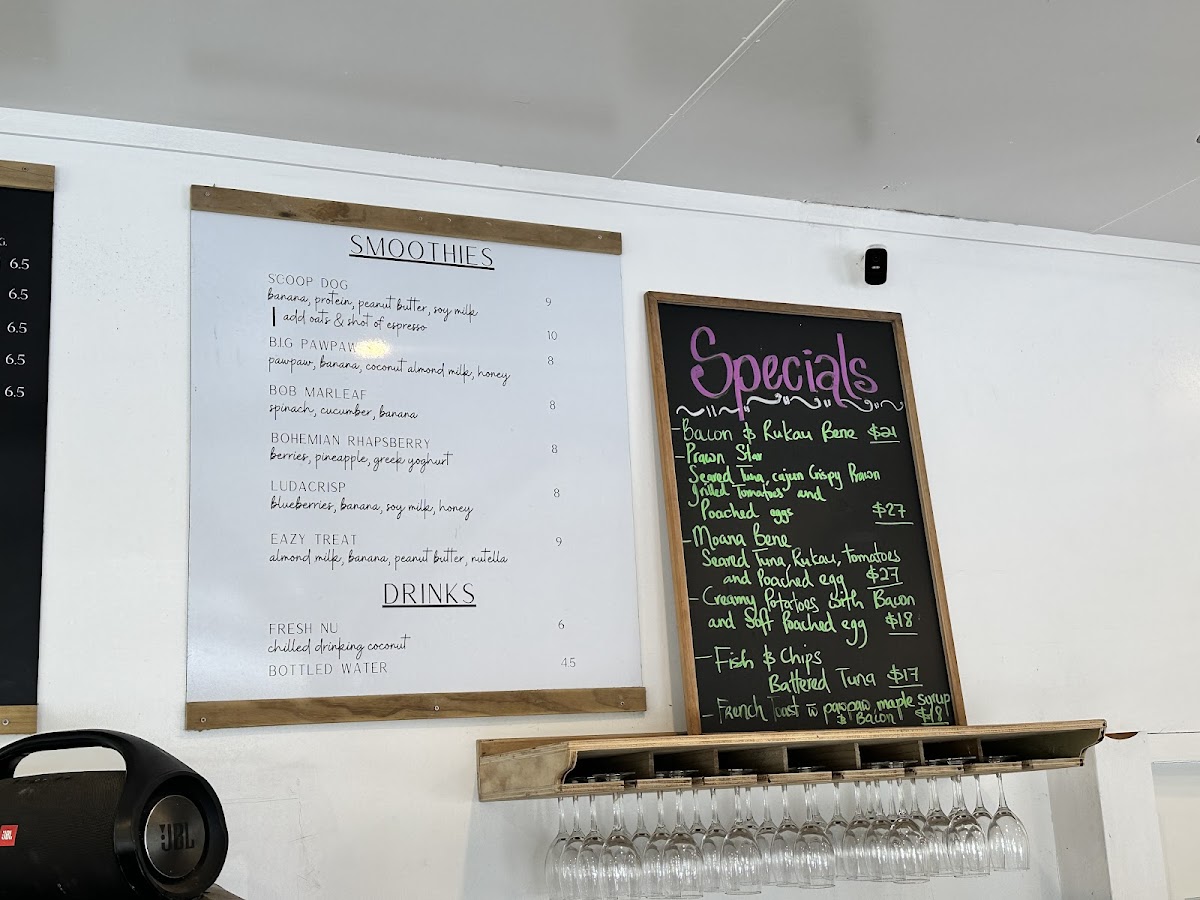 G.
6.5
6.5
6.5
6.5
6.5
SMOOTHIES
SCOOP DOG
banana, protein, peanut butter, soy milk 9
add oats & shot of espresso 10
B.I.G PAWPAW 8
pawpaw, banana, coconut almond milk, honey
BOB MARLEAF
spinach, cucumber, banana 8
BOHEMIAN RHAPSBERRY 8
berries, pineapple, greek yoghurt
LUDACRISP 8
blueberries, banana, soy milk, honey
EAZY TREAT 9
almond milk, banana, peanut butter, nutella
DRINKS
FRESH NU 6
chilled drinking coconut
BOTTLED WATER 4.5
Specials
- Bacon & Rukau Bene $21
- Prawn Star
Seared Tuna, cajun Crispy Prawn
grilled Tomatoes and
Poached eggs $27
- Moana Bene
Seared Tuna, Rukau, tomatoes
and Poached egg $27
- Creamy Potatoes with Bacon
and Soft Poached egg $18
- Fish & Chips
Battered Tuna $17
- French Toast w pawpaw maple syrup
& Bacon $18
JBL
JBL